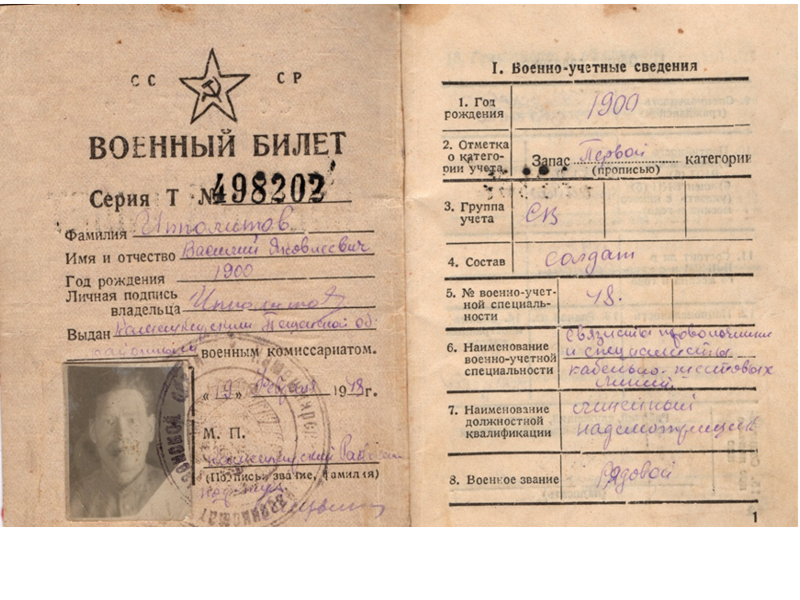 СС СР
ВОЕННЫЙ БИЛЕТ
Серия Т № 498202
Фамилия Ипполитов
Имя и отчество Василий Яковлевич
Год рождения 1900
Личная подпись
владельца Ипполитов
Выдан
военным комиссариатом.
„19" февраля 1948 г.
М. П.
(Подпись, звание, фамилия)
I. Военно-учетные сведения
1. Год
рождения 1900
2. Отметка
о катего-
рии учета Запас Первой категории
(прописью)
3. Группа
учета СВ
4. Состав солдат
5. № военно-учет-
ной специаль-
ности 48.
6. Наименование
военно-учетной
специальности
связисты проволочники
и специалисты
кабельно-шестовых
линий
7. Наименование
должностной
квалификации
линейный
надсмотрщик
8. Военное звание Рядовой
1